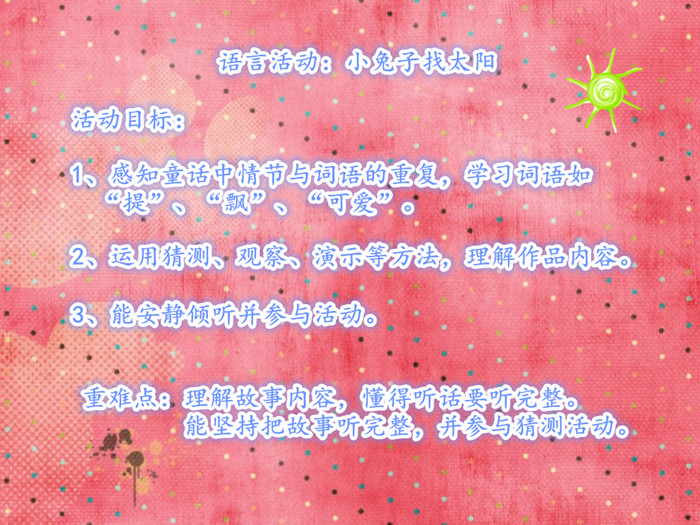 语言活动：小兔子找太阳
活动目标：
1、感知童话中情节与词语的重复，学习词语如
“提”、“飘”、“可爱”。
2、运用猜测、观察、演示等方法，理解作品内容。
3、能安静倾听并参与活动。
重难点：理解故事内容，懂得听话要听完整。
能坚持把故事听完整，并参与猜测活动。